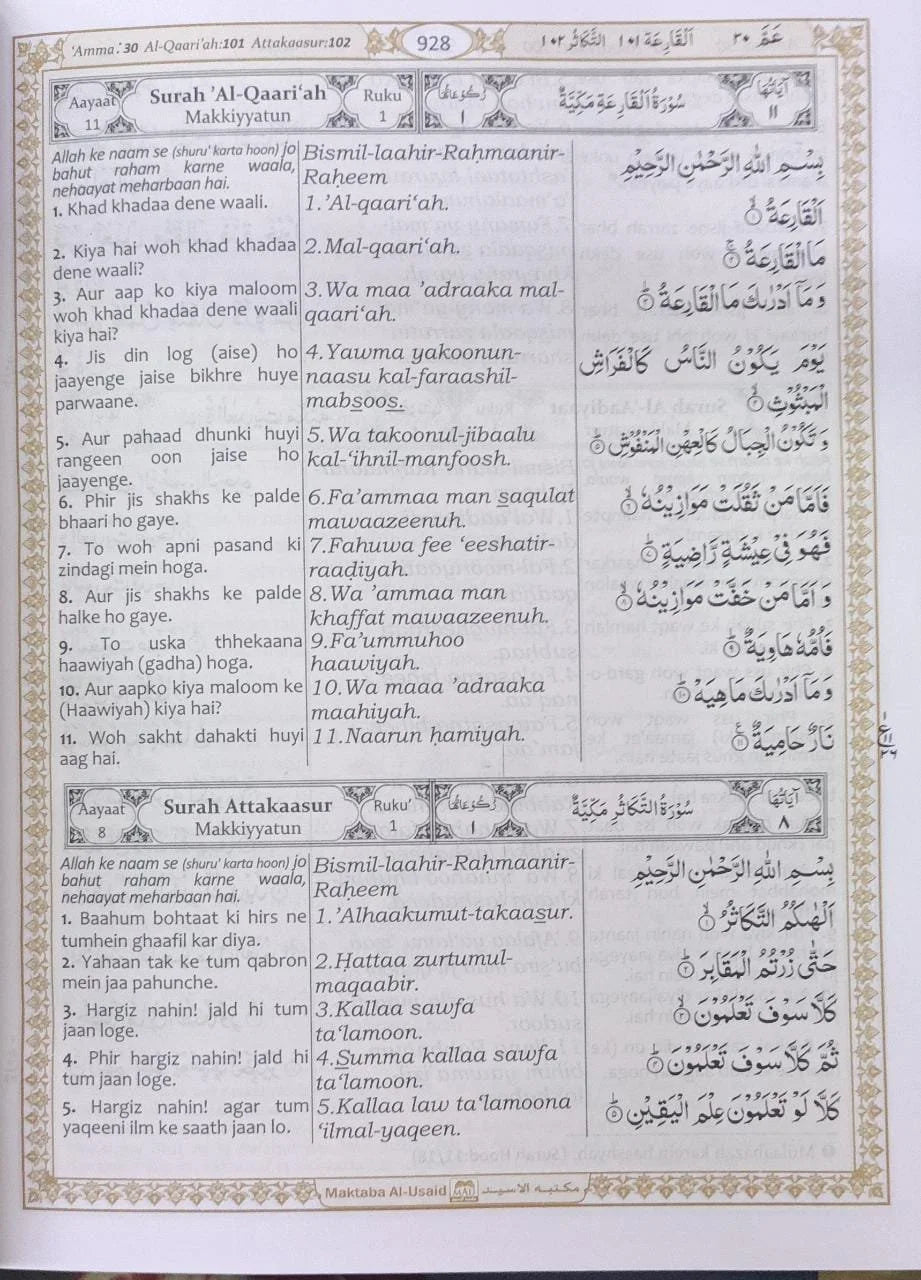 'Amma: 30 Al-Qaari'ah:101 Attakaasur:102
928
عَمَّ ٣٠ اَلْقَارِعَة ١٠١ اَلتَّكَاثُر ١٠٢
Aayaat
11
Surah 'Al-Qaari'ah
Makkiyyatun
Ruku
1
رُكُوْعَاتُهَا
١
سُوْرَةُ الْقَارِعَةِ مَكِّيَّةٌ
اٰيَاتُهَا
١١
Allah ke naam se (shuru' karta hoon) jo
bahut raham karne waala,
nehaayat meharbaan hai.
1. Khad khadaa dene waali.
2. Kiya hai woh khad khadaa
dene waali?
3. Aur aap ko kiya maloom
woh khad khadaa dene waali
kiya hai?
4. Jis din log (aise) ho
jaayenge jaise bikhre huye
parwaane.
5. Aur pahaad dhunki huyi
rangeen oon jaise ho
jaayenge.
6. Phir jis shakhs ke palde
bhaari ho gaye.
7. To woh apni pasand ki
zindagi mein hoga.
8. Aur jis shakhs ke palde
halke ho gaye.
9. To uska thhekaana
haawiyah (gadha) hoga.
10. Aur aapko kiya maloom ke
(Haawiyah) kiya hai?
11. Woh sakht dahakti huyi
aag hai.
Bismil-laahir-Raḥmaanir-
Raḥeem
1.'Al-qaari'ah.
2.Mal-qaari'ah.
3.Wa maa 'adraaka mal-
qaari'ah.
4.Yawma yakoonun-
naasu kal-faraashil-
mabsoos.
5.Wa takoonul-jibaalu
kal-'ihnil-manfoosh.
6.Fa'ammaa man saqulat
mawaazeenuh.
7.Fahuwa fee 'eeshatir-
raaḍiyah.
8.Wa 'ammaa man
khaffat mawaazeenuh.
9.Fa'ummuhoo
haawiyah.
10.Wa maaa 'adraaka
maahiyah.
11.Naarun ḥamiyah.
بِسْمِ اللّٰهِ الرَّحْمٰنِ الرَّحِيْمِ
اَلْقَارِعَةُ ۙ١
مَا الْقَارِعَةُ ۚ٢
وَمَاۤ اَدْرٰىكَ مَا الْقَارِعَةُ ؕ٣
يَوْمَ يَكُوْنُ النَّاسُ كَالْفَرَاشِ
الْمَبْثُوْثِ ۙ٤
وَ تَكُوْنُ الْجِبَالُ كَالْعِهْنِ الْمَنْفُوْشِ ؕ٥
فَاَمَّا مَنْ ثَقُلَتْ مَوَازِيْنُهٗ ۙ٦
فَهُوَ فِيْ عِيْشَةٍ رَّاضِيَةٍ ؕ٧
وَ اَمَّا مَنْ خَفَّتْ مَوَازِيْنُهٗ ۙ٨
فَاُمُّهٗ هَاوِيَةٌ ؕ٩
وَمَاۤ اَدْرٰىكَ مَا هِيَهْ ؕ١٠
نَارٌ حَامِيَةٌ ۠١١
Aayaat
8
Surah Attakaasur
Makkiyyatun
Ruku'
1
رُكُوْعَاتُهَا
١
سُوْرَةُ التَّكَاثُرِ مَكِّيَّةٌ
اٰيَاتُهَا
٨
Allah ke naam se (shuru' karta hoon) jo
bahut raham karne waala,
nehaayat meharbaan hai.
1. Baahum bohtaat ki hirs ne
tumhein ghaafil kar diya.
2. Yahaan tak ke tum qabron
mein jaa pahunche.
3. Hargiz nahin! jald hi tum
jaan loge.
4. Phir hargiz nahin! jald hi
tum jaan loge.
5. Hargiz nahin! agar tum
yaqeeni ilm ke saath jaan lo.
Bismil-laahir-Raḥmaanir-
Raḥeem
1.'Alhaakumut-takaasur.
2.Hattaa zurtumul-
maqaabir.
3.Kallaa sawfa
ta'lamoon.
4.Summa kallaa sawfa
ta'lamoon.
5.Kallaa law ta'lamoona
'ilmal-yaqeen.
بِسْمِ اللّٰهِ الرَّحْمٰنِ الرَّحِيْمِ
اَلْهٰىكُمُ التَّكَاثُرُ ۙ١
حَتّٰى زُرْتُمُ الْمَقَابِرَ ؕ٢
كَلَّا سَوْفَ تَعْلَمُوْنَ ۙ٣
ثُمَّ كَلَّا سَوْفَ تَعْلَمُوْنَ ؕ٤
كَلَّا لَوْ تَعْلَمُوْنَ عِلْمَ الْيَقِيْنِ ؕ٥
Maktaba Al-Usaid
MAU
مكتبه الاسيد